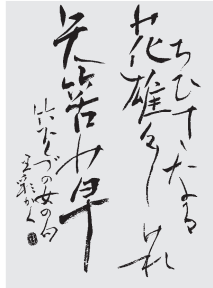 ちひさなる
花雄々しけれ
矢筈草
しづの女の句
かく